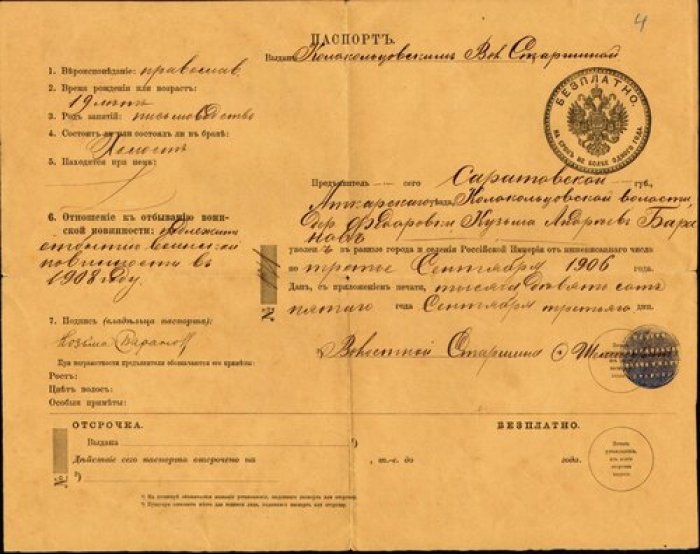 4
ПАСПОРТЪ.
Выданъ Колокольцовскимъ Вол. Старшиной
1. Вѣроисповѣданіе: православ.
2. Время рожденія или возрастъ:
19 лѣтъ
3. Родъ занятій: письмоводство
4. Состоитъ ли или состоялъ ли въ бракѣ:
Холостъ
5. Находятся при немъ:
6. Отношеніе къ отбыванію воин-
ской повинности: подлежитъ
отбытію воинской
повинности въ
1908 году.
7. Подпись (владѣльца паспорта):
Козьма Барановъ
При неграмотности предъявителя обозначаются его примѣты:
Ростъ:
Цвѣтъ волосъ:
Особыя примѣты:
БЕЗПЛАТНО.
НА СРОКЪ НЕ БОЛѢЕ ОДНОГО ГОДА.
Предъявитель сего Саратовской губ.,
Аткарскаго уѣзда, Колокольцовской волости,
Федоровки Кузьма Андреевъ Бара
новъ
уволенъ въ разные города и селенія Россійской Имперіи отъ нижеписаннаго числа
по третье Сентября 1906 года.
Данъ, съ приложеніемъ печати, тысяча девять сотъ
пятаго года Сентября третьяго дня.
№
Волостной Старшина
ОТСРОЧКА.
БЕЗПЛАТНО.
Выдана ¹)
Дѣйствіе сего паспорта отсрочено на , т.-е. до года.
№ ²)
Печать
учрежденія,